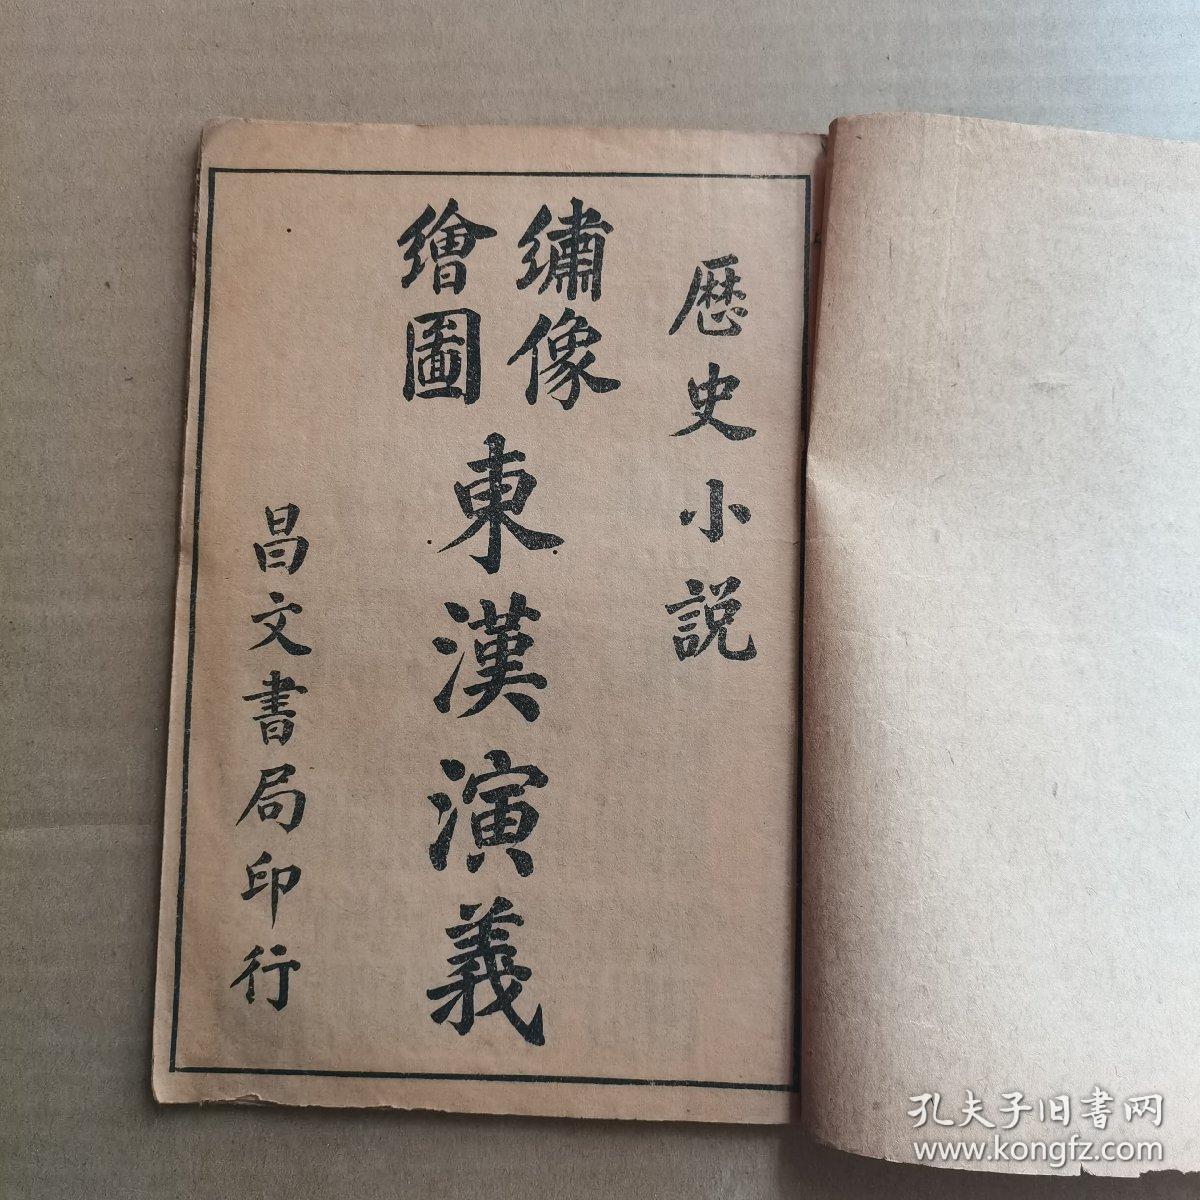 歷史小説
繡像
繪圖
東漢演義
昌文書局印行
孔夫子旧書网
www.kongfz.com